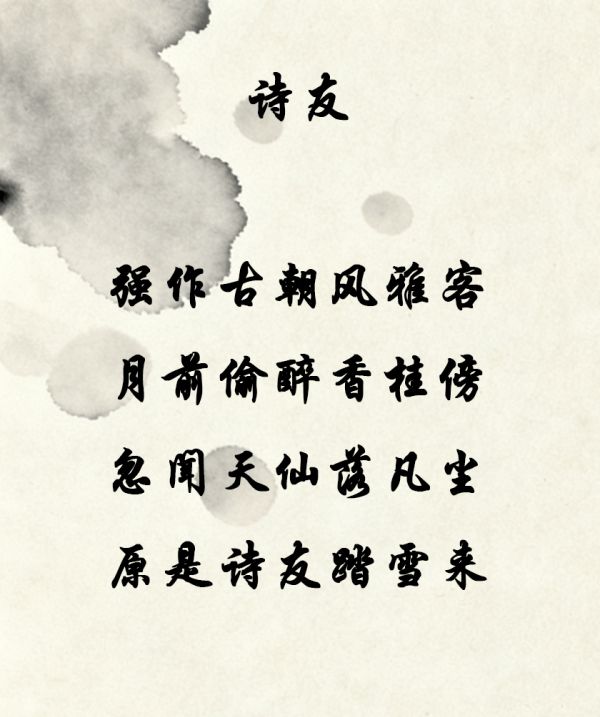 诗友
强作古朝风雅客
月前偷醉香桂傍
忽闻天仙落凡尘
原是诗友踏雪来